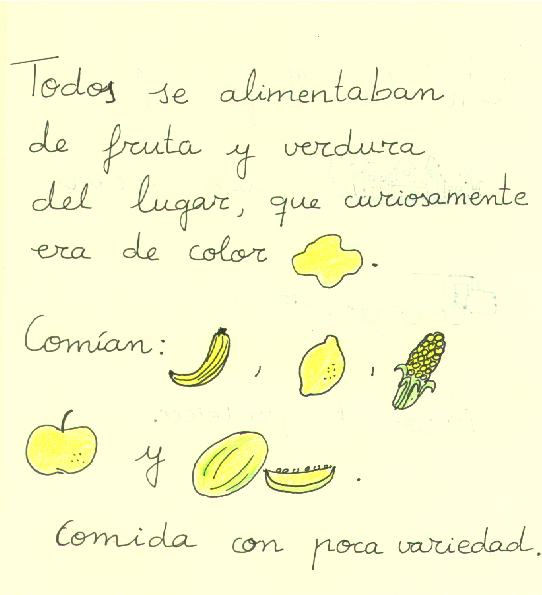 Todos se alimentaban
de fruta y verdura
del lugar, que curiosamente
era de color .
Comían: , ,
y .
Comida con poca variedad.